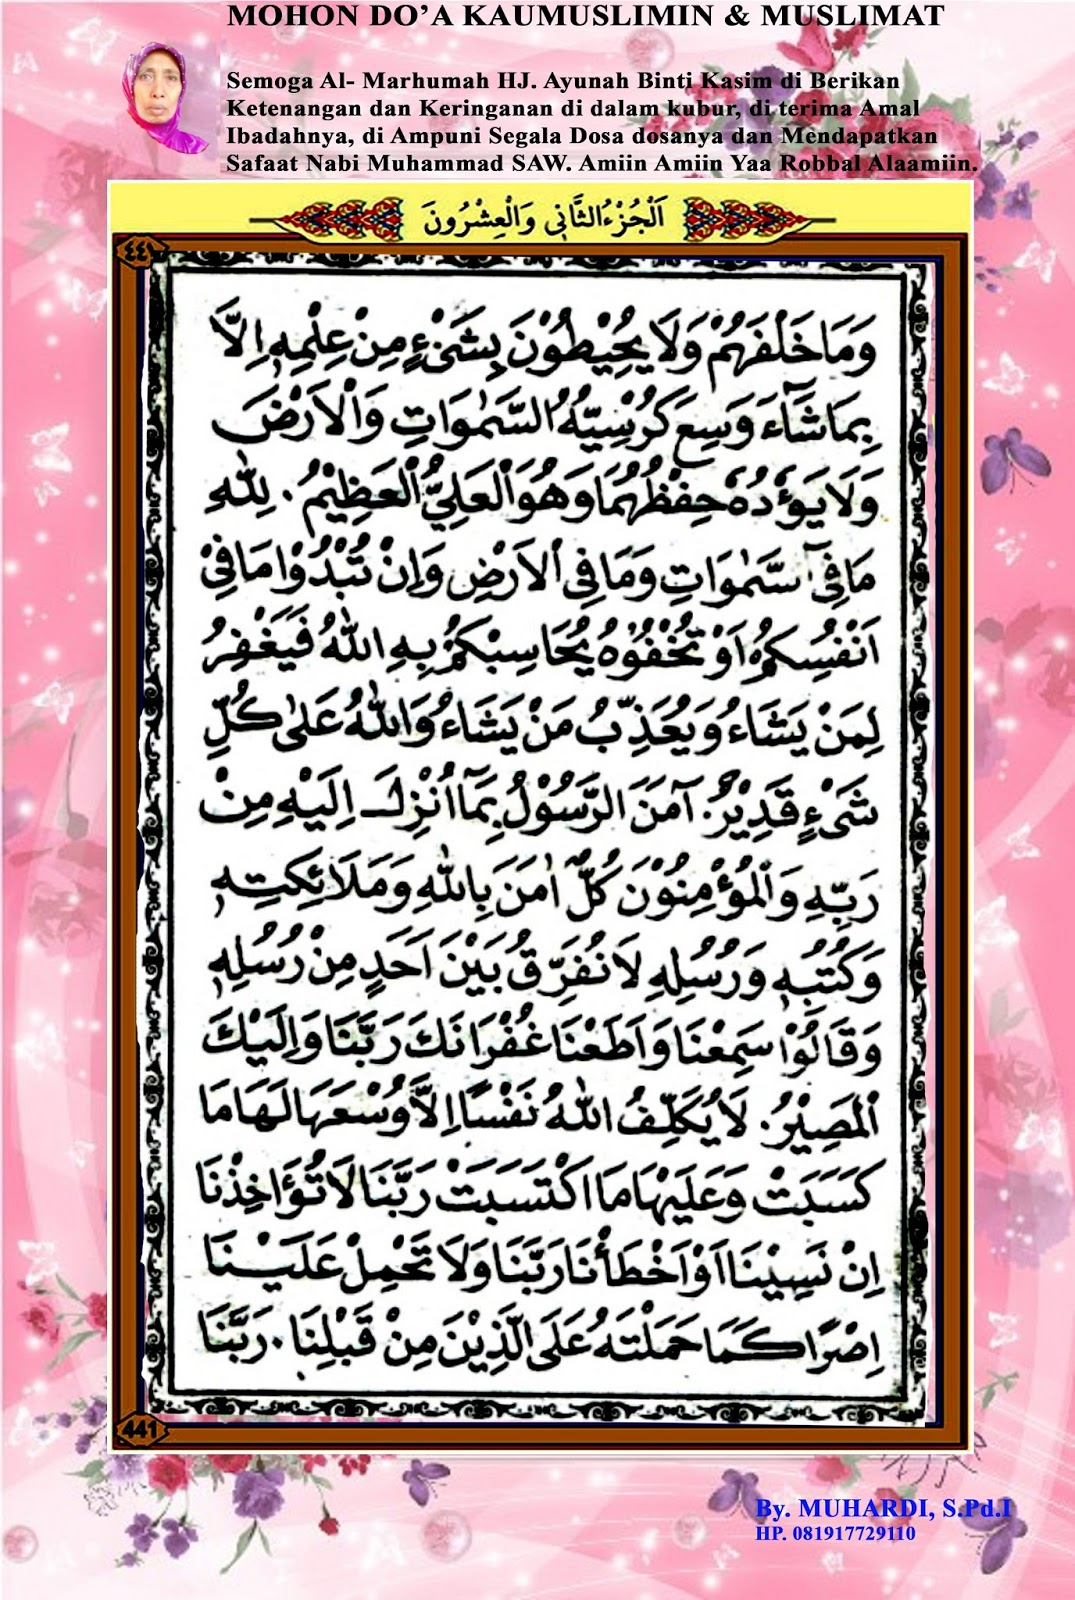 MOHON DO'A KAUMUSLIMIN & MUSLIMAT
Semoga Al- Marhumah HJ. Ayunah Binti Kasim di Berikan
Ketenangan dan Keringanan di dalam kubur, di terima Amal
Ibadahnya, di Ampuni Segala Dosa dosanya dan Mendapatkan
Safaat Nabi Muhammad SAW. Amiin Amiin Yaa Robbal Alaamiin.
اَلْجُزْءُ الثَّانِي وَالْعِشْرُونَ
٤٤١
وَمَا خَلْفَهُمْ وَلَا يُحِيْطُوْنَ بِشَىْءٍ مِنْ عِلْمِهٖ اِلَّا
بِمَا شَآءَ وَسِعَ كُرْسِيُّهُ السَّمٰوَاتِ وَالْاَرْضَ
وَلَا يَؤُدُهُ حِفْظُهُمَا وَهُوَ الْعَلِيُّ الْعَظِيْمُ. لِلّٰهِ
مَا فِىٓ سَّمٰوَاتِ وَمَا فِى الْاَرْضِ وَاِنْ تُبْدُوْا مَا فِىْ
اَنْفُسِكُمْ اَوْ تُخْفُوْهُ يُحَاسِبْكُمْ بِهِ اللهُ فَيَغْفِرُ
لِمَنْ يَشَاءُ وَيُعَذِّبُ مَنْ يَشَاءُ وَاللهُ عَلٰى كُلِّ
شَىْءٍ قَدِيْرٌ. آمَنَ الرَّسُوْلُ بِمَآ اُنْزِلَ اِلَيْهِ مِنْ
رَبِّهِ وَالْمُؤْمِنُوْنَ كُلٌّ اٰمَنَ بِاللهِ وَمَلَائِكَتِهٖ
وَكُتُبِهٖ وَرُسُلِهِ لَا نُفَرِّقُ بَيْنَ اَحَدٍ مِنْ رُسُلِهٖ
وَقَالُوْا سَمِعْنَا وَاَطَعْنَا غُفْرَانَكَ رَبَّنَا وَاِلَيْكَ
الْمَصِيْرُ. لَا يُكَلِّفُ اللهُ نَفْسًا اِلَّا وُسْعَهَا لَهَا مَا
كَسَبَتْ وَعَلَيْهَا مَا اكْتَسَبَتْ رَبَّنَا لَا تُؤَاخِذْنَا
اِنْ نَسِيْنَا اَوْ اَخْطَأْنَا رَبَّنَا وَلَا تَحْمِلْ عَلَيْنَا
اِصْرًا كَمَا حَمَلْتَهُ عَلَى الَّذِيْنَ مِنْ قَبْلِنَا. رَبَّنَا
441
By. MUHARDI, S.Pd.I
HP. 081917729110